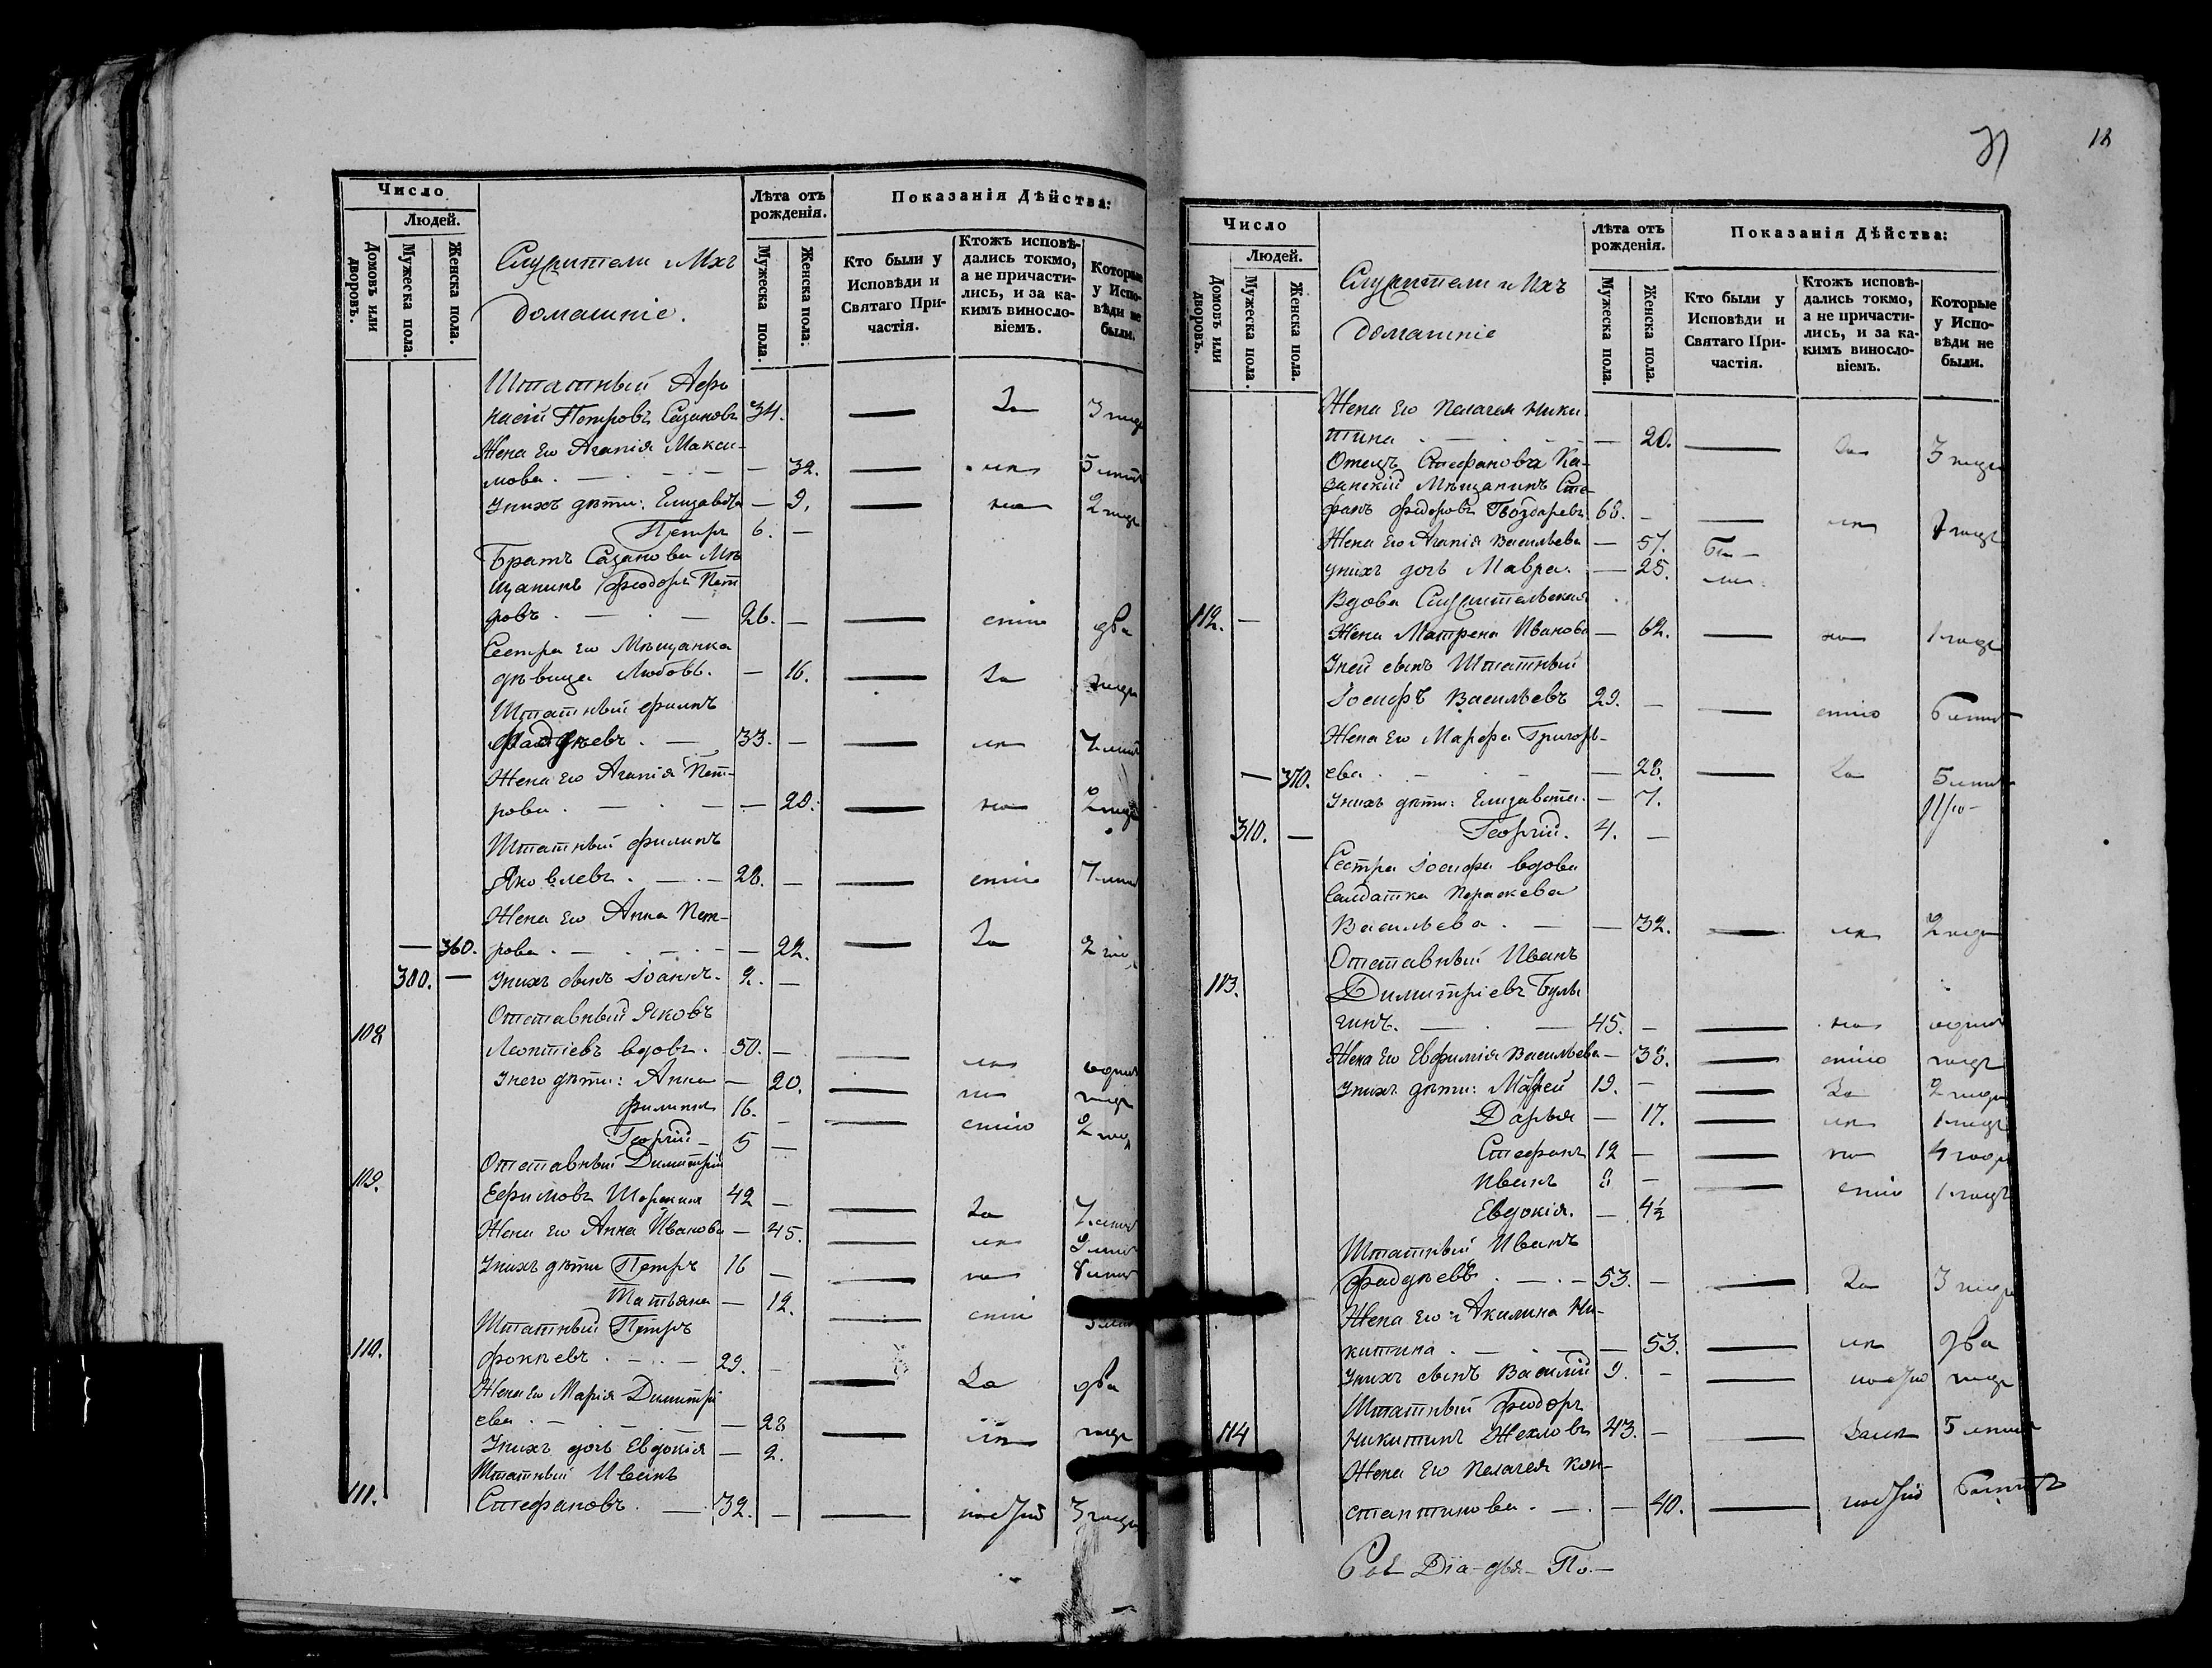 Число
Людей.
Домовъ или дворовъ.
Мужеска пола.
Женска пола.
Служители и Ихъ
домашніе.
Лѣта отъ рожденія.
Мужеска пола.
Женска пола.
Показанія Дѣйства:
Кто были у Исповѣди и Святаго Причастія.
Ктожъ исповѣдались токмо, а не причастились, и за какимъ винословіемъ.
Которые у Исповѣди не были.
Штатный Афо
насій Петровъ Сазановъ 34. — За 3 года
Жена Его Агапія Макси-
мова. — — 32. — 5 лѣтъ
У нихъ дѣти: Елизавета — 9. — 2 года
Петръ 6. —
Братъ Сазанова Мѣ
щанинъ Феодоръ Пет
ровъ. — 26. — — стію два
Сестра его Мѣщанка
дѣвица Любовь. — 16. — За года
Штатный Филипъ
Фаддѣевъ. — 33. — — 7 лѣтъ
Жена Его Агапія Пет-
рова. — — 20. — 2 года
Штатный Филипъ
Яковлевъ. — 28. — — стію 7 лѣтъ
Жена Его Анна Пет-
— 360. рова. — — 22. — За 2 го
300. — У нихъ сынъ Іоаннъ. 2. —
Отставный Яковъ
108 Леонтіевъ вдовъ. 50. — — одинъ
У него дѣти: Анна — 20. — годъ
Филипъ 16. — — стію 2 года
Георгій — 5 —
Отставный Димитрій
109. Ефимовъ 42 — — За 7 лѣтъ
Жена его Анна Иванова — 45. —
У нихъ дѣти Петръ 16 — — 8 лѣтъ
Татьяна — 12. — стію
Штатный Петръ
110. Фокѣевъ. — 29. — — За два
Жена Его Марія Димитрі
ева. — — 28 — года
У нихъ дочь Евдокія — 2.
Штатный Иванъ
111. Стефановъ. — 32. — — 3 года
18
Число
Людей.
Домовъ или дворовъ.
Мужеска пола.
Женска пола.
Служители и Ихъ
домашніе
Лѣта отъ рожденія.
Мужеска пола.
Женска пола.
Показанія Дѣйства:
Кто были у Исповѣди и Святаго Причастія.
Ктожъ исповѣдались токмо, а не причастились, и за какимъ винословіемъ.
Которые у Исповѣди не были.
Жена Его Пелагея Ники
тина — 20. — За 3 года
Отецъ Стефанова Ка-
занскій Мѣщанинъ Сте-
фанъ Федоровъ Гвоздаревъ 68. — —
Жена Его Агапія Васильева — 57. Бы —
у нихъ дочь Мавра. — 25. ли
Вдова Служительская
112. — Жена Матрена Иванова — 62. — 1 годъ
У ней сынъ Штатный
Іосифъ Васильевъ 29. — — стію 6 лѣтъ
Жена Его Марфа Григорь-
— 370. ева. — — 28. — За 5 лѣтъ
У нихъ дѣти: Елизавета. — 7.
310. — Георгій. 4. —
Сестра Іосифа вдова
Солдатка Параскева
Васильева. — — 32. — 2 года
Отставный Иванъ
113. Димитріевъ Булы
гинъ. — 45. — — одинъ
Жена Его Евфимія Васильева — 38. — стію годъ
У нихъ дѣти: 19. — — За 2 года
Дарья — 17. — 1 годъ
Стефанъ 12 — — 4 года
Иванъ 8 — — стію 1 годъ
Евдокія. — 4½
Штатный Иванъ
Фаддѣевъ. — 53. — — За 3 года
Жена Его Акилина Ни-
китина. — — 53. — два
У нихъ сынъ Василій 9. — — года
Штатный Феодоръ
114 Никитинъ Жехловъ 43. — — 5 лѣтъ
Жена Его Пелагея Кон-
стантинова. — — 40. — 6 лѣтъ
Діа-